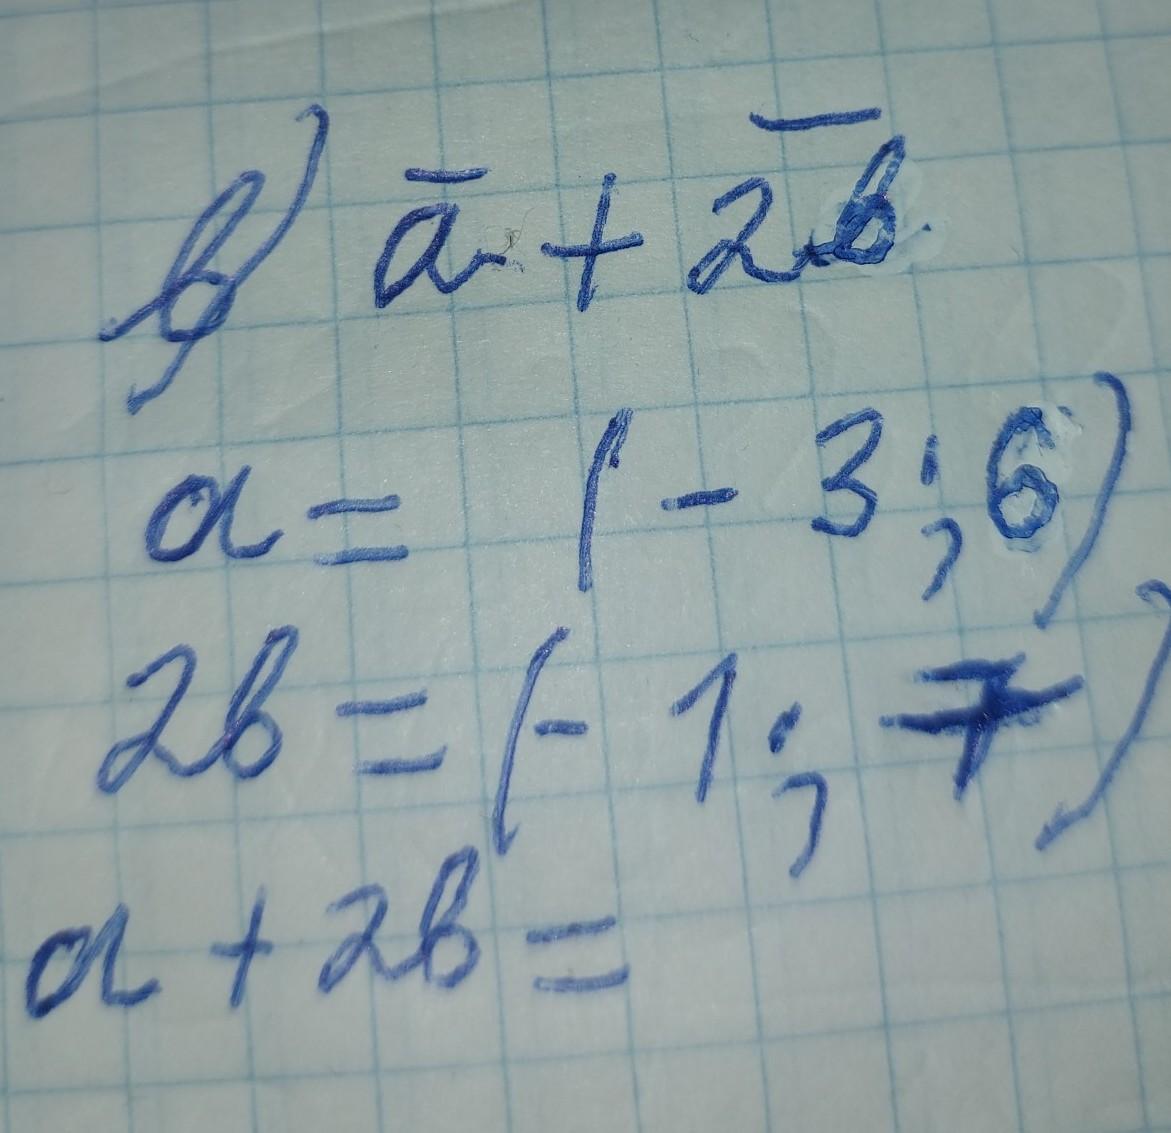 b) a̅ + 2b̅
a = (-3; 6)
2b = (-1; 7)
a + 2b =